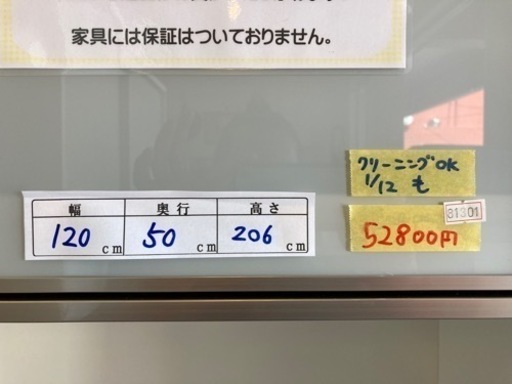 家具には保証はついておりません。
幅 奥行 高さ
120 cm 50 cm 206 cm
クリーニングOK
1/12 も
31301
52800円